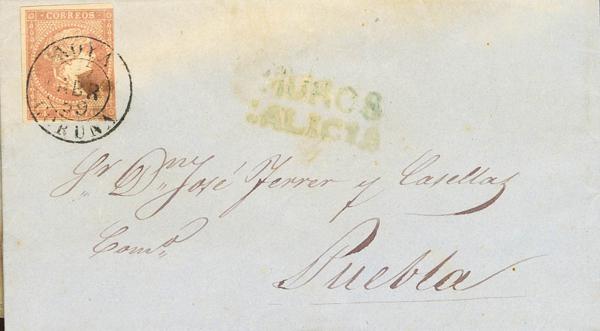 CORREOS
NOYA
ABR
59
CORUÑA
MUROS
GALICIA
Sr. Dn. José Ferrer y Casellas
Como.
Puebla